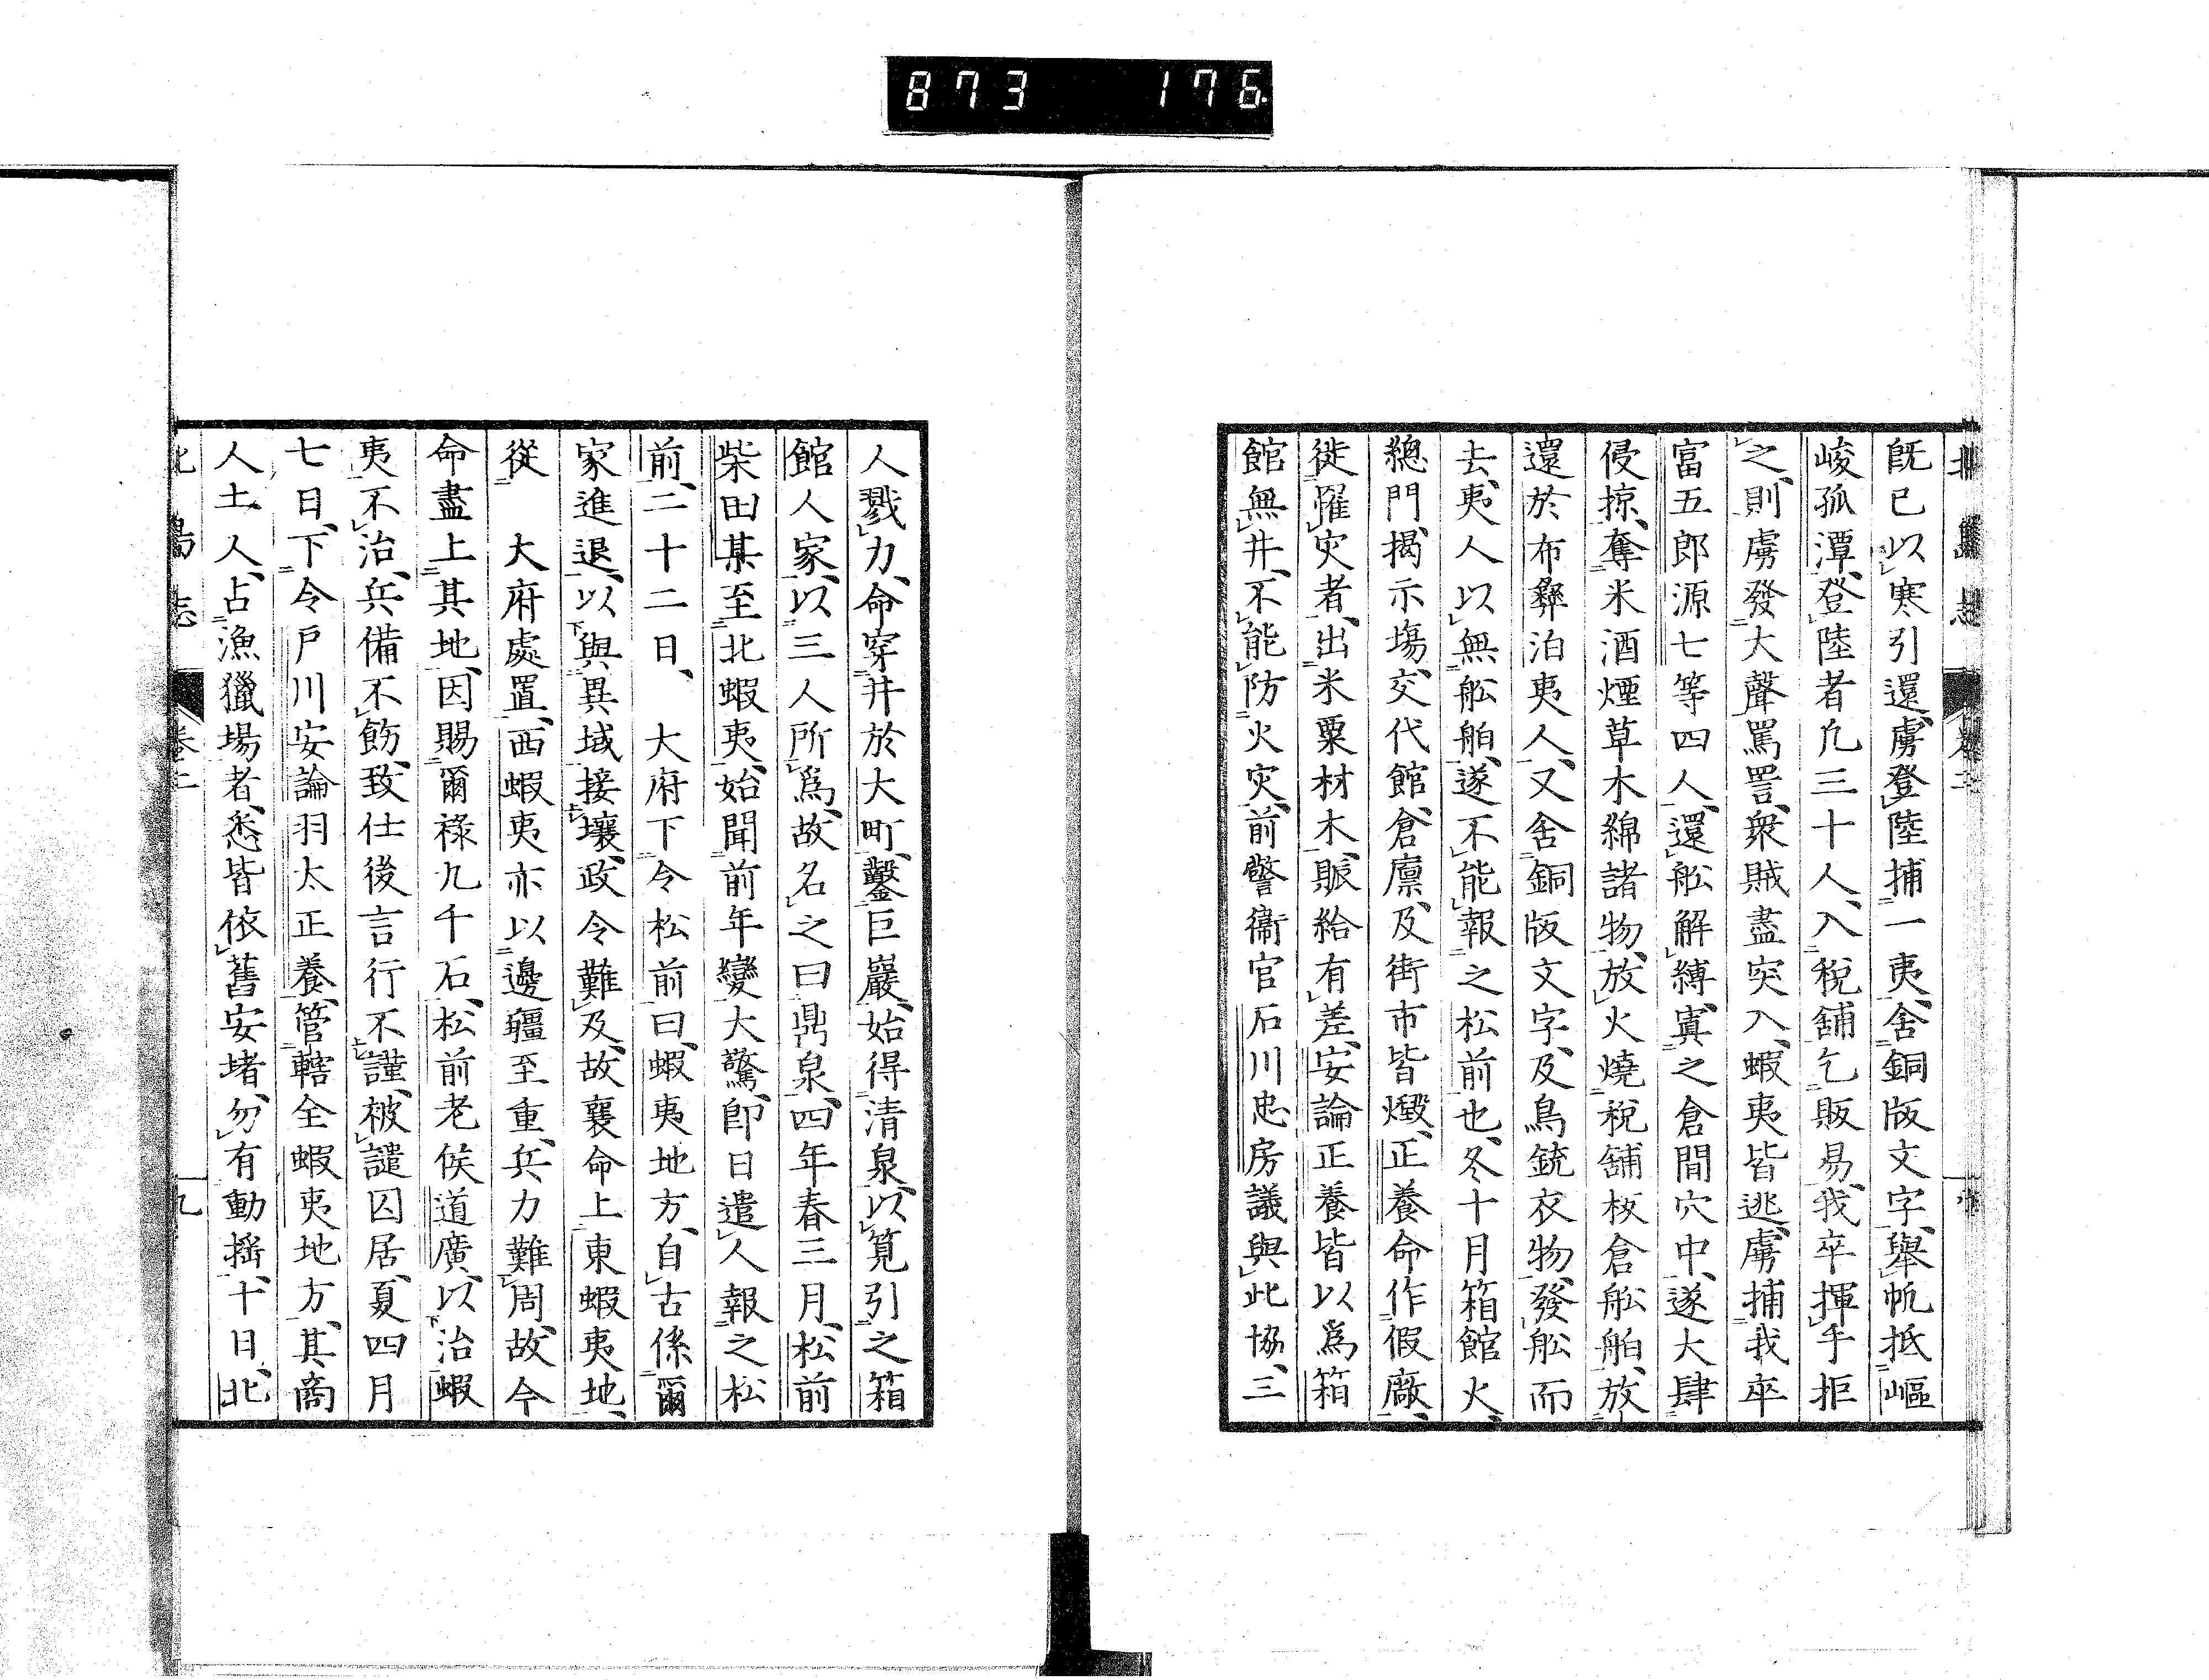 873 176
北島志 卷二
既已以寒引還、虜登陸捕一夷、舍銅版文字、舉帆抵嶇
峻孤潭、登陸者凢三十人、入稅舖乞販易、我卒揮手拒
之、則虜發大聲罵詈、衆賊盡突入、蝦夷皆逃、虜捕我卒
富五郎源七等四人、還舩解縛、寘之倉間穴中、遂大肆
侵掠、奪米酒煙草木綿諸物、放火燒稅舖板倉舩舶、放
還於布彝泊夷人、又舍銅版文字、及鳥銃衣物、發舩而
去、夷人以無舩舶、遂不能報之松前也、冬十月箱館火、
總門、揭示塲、交代館、倉廩、及街市皆燬、正養命作假廠、
徙罹灾者、出米粟材木、賑給有差、安論正養皆以爲箱
館無井、不能防火灾、前警衞官石川忠房議與此協、三
人戮力、命穿井於大町、鑿巨巖、始得清泉、以筧引之箱
館人家、以三人所爲、故名之曰鼎泉、四年春三月、松前
柴田某至北蝦夷、始聞前年變大驚、卽日遣人報之松
前、二十二日、 大府下令松前曰、蝦夷地方、自古係爾
家進退、以與異域接壤、政令難及、故襄命上東蝦夷地、
從 大府處置、西蝦夷亦以邊疆至重、兵力難周、故今
命盡上其地、因賜爾祿九千石、松前老侯道廣、以治蝦
夷不治、兵備不飭、致仕後言行不謹、被譴囚居、夏四月
七日、下令戸川安論羽太正養、管轄全蝦夷地方、其商
人土人、占漁獵場者、悉皆依舊安堵、勿有動搖、十日、北
北島志 卷二 九